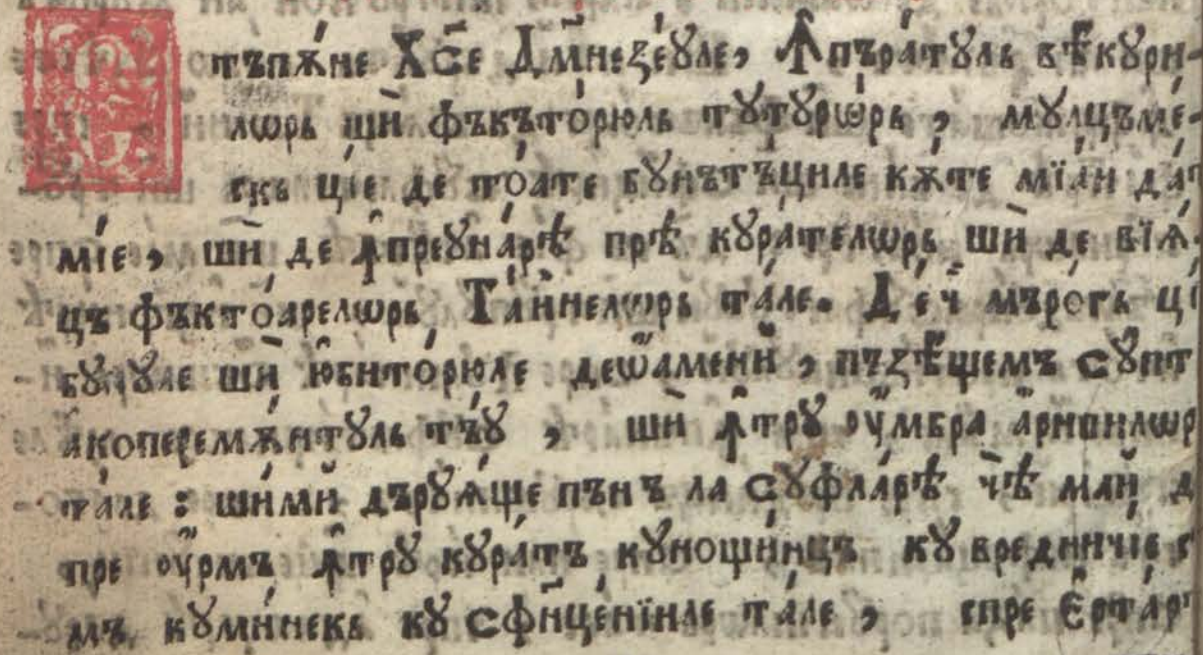 Стъпѫ́не Хс҃е Дм҃незе́ꙋле, Ꙟпъра́тꙋль вѣ́кꙋри-
лѡрь шѝ фъкъто́рюль тꙋтꙋрѡ́рь, мꙋлцъме-
скь ці́е де то́ате бꙋнътъциле кѫ́те мїай да́т
мі́е, шѝ де ꙟпреꙋна́рѣ прѣ кꙋра́телѡрь шѝ де вїѧ́
цъ фъкто́арелѡрь Та́йнелѡрь та́ле. Де́чй мъро́гь ці́
бꙋнꙋле шѝ юбито́рюле деѡ́аменй, пъзѣ́щемъ сꙋпт
акоперемѫ́нтꙋль тъ́ꙋ, шѝ ꙟтрꙋ оу҆́мбра а҆рипилѡр
та́ле: шѝмй дърꙋѧ́ще пънъ ла сꙋфла́рѣ чѣ май д
пре оу҆́рмъ ꙟтрꙋ кꙋра́тъ кꙋноши́нцъ кꙋ вредничіе с
мъ кꙋми́некь кꙋ сфи́нценїиле та́ле, спре Е҆рта́р